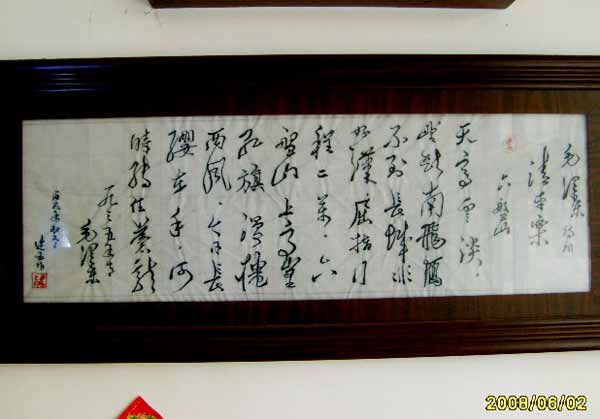 毛澤東
清平樂
六盤山
天高雲淡.
望斷南飛雁
不到長城非
好漢屈指行
程二萬.六
盤山上高峯
紅旗漫捲
西風.今日長
纓在手.何
時縛住蒼龍
一九三五年
毛澤東
2008/06/02